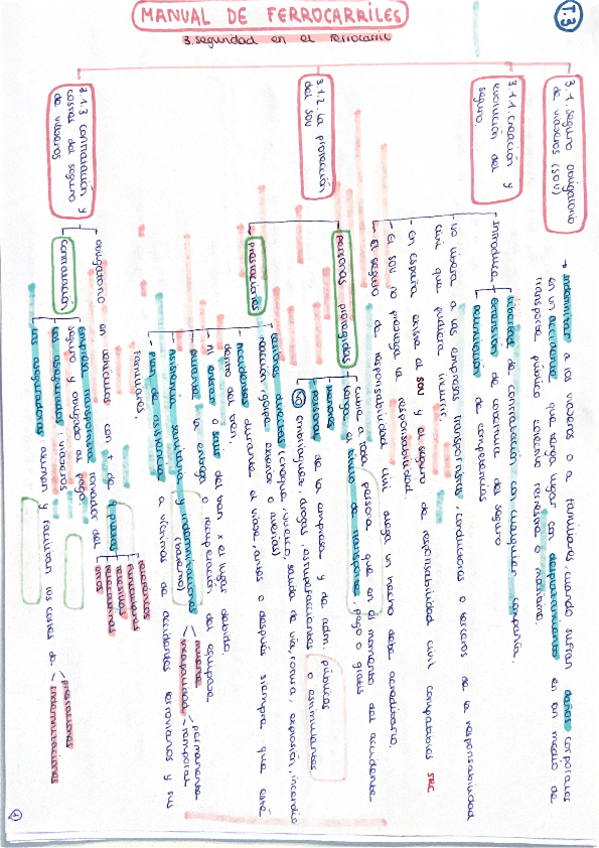 T.3
MANUAL DE FERROCARRILES
3. seguridad en el ferrocarril
3.1. Seguro obligatorio
de viajeros (SOV)
→ Indemnizar a los viajeros o a familiares, cuando sufran daños corporales
en un accidente que tenga lugar con desplazamiento en un medio de
transporte público colectivo terrestre o marítimo.
3.1.1. creación y
evolución del
seguro.
introduce
libertad de contratación con cualquier compañía.
extensión de cobertura del seguro
de competencias
- No libera a las empresas transportistas, conductores o terceros de la responsabilidad
civil que pudiera incurrir.
- en España existe el SOV y el seguro de responsabilidad civil compatibles SRC
- El SOV no prejuzga la responsabilidad.
- El seguro de responsabilidad civil alega un hecho debe acreditarlo.
3.1.2 La protección
del SOV
personas protegidas
cubre a toda persona que en el momento del accidente
tenga el título de transporte, pago o gratis
menores
personal de la empresa y de adm. públicas
NO embriagues, drogas, estupefacientes o estimulantes
prestaciones
daños directos (choque, vuelco, salida de vía, rotura, explosión, incendio
reacción, golpe exterior o averías)
accidentes durante el viaje, antes o después siempre que esté
dentro del tren.
Al entrar o salir del tren x el lugar debido.
durante la entrega o recuperación del equipaje
Asistencia sanitaria y indemnizaciones
(baremo)
muerte
incapacidad
permanente
temporal
plan de asistencia a víctimas de accidentes ferroviarios y sus
familiares.
3.1.3 contratación y
costes del seguro
de viajeros
obligatorio en vehículos con + de 9 plazas
teleféricos
funiculares
telesillas
telecabinas
otros
contratación
empresa transportista tomador del
seguro y obligado al pago
los asegurados: viajeros
las aseguradoras asumen y facilitan los costes de
prestaciones
indemnizaciones
1